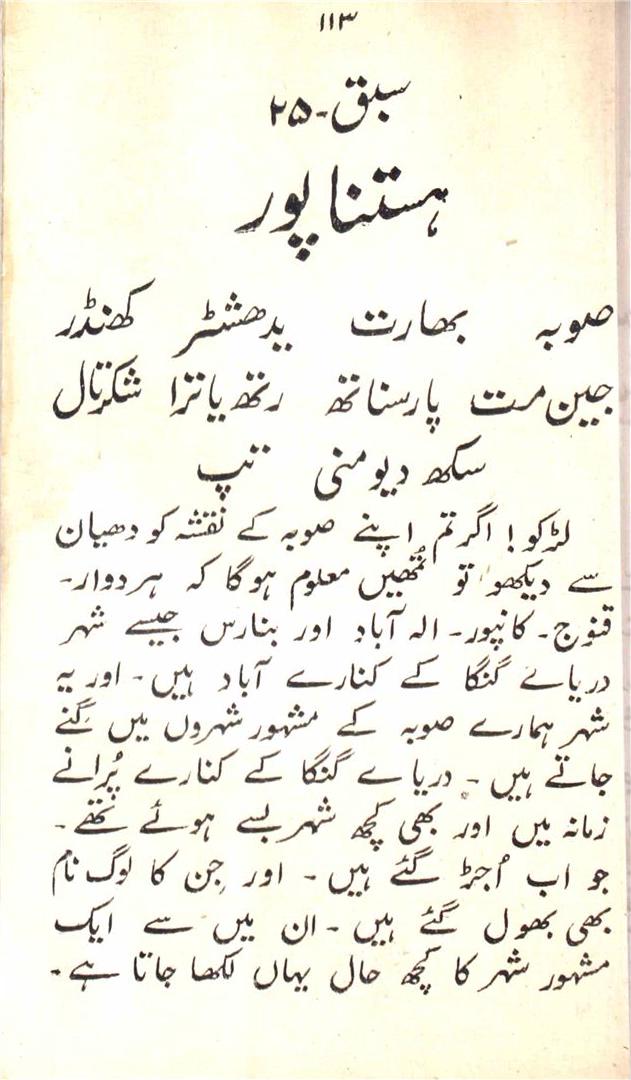 ۱۱۳
سبق - ۲۵
ہستنا پور
صوبہ بھارت یدھشٹر کھنڈر
جین مت پارسناتھ رتھ یاترا شکرتال
سکھ دیو منی تپ
لڑکو! اگر تم اپنے صوبہ کے نقشہ کو دھیان
سے دیکھو تو تُمھیں معلوم ہوگا کہ ہردوار۔
قنوج۔ کانپور۔ الہ آباد اور بنارس جیسے شہر
دریائے گنگا کے کنارے آباد ہیں۔ اور یہ
شہر ہمارے صوبہ کے مشہور شہروں میں گِنے
جاتے ہیں۔ دریائے گنگا کے کنارے پُرانے
زمانہ میں اور بھی کچھ شہر بسے ہوئے تھے۔
جو اب اُجڑ گئے ہیں۔ اور جِن کا لوگ نام
بھی بھول گئے ہیں۔ ان میں سے ایک
مشہور شہر کا کچھ حال یہاں لکھا جاتا ہے۔